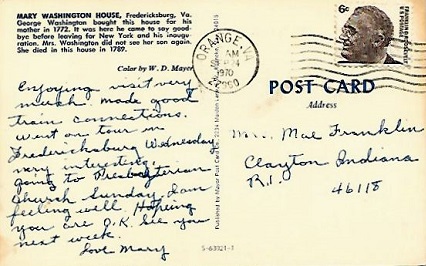 MARY WASHINGTON HOUSE, Fredericksburg, Va.
George Washington bought this house for his
mother in 1772. It was here he came to say good-
bye before leaving for New York and his inaugu-
ration. Mrs. Washington did not see her son again.
She died in this house in 1789.
Color by W. D. Mayor
Enjoying visit very
much made good
train connections.
Went on tour in
Fredericksburg Wednesday
very interesting.
going to Presbyterian
Church Sunday. I am
feeling well Hopeing
you are O.K. See you
next week.
Love Mary
Published by Mayor Post Card
S-63021-1
ORANGE, VA
AM
1970
6c
POST CARD
Address
Mrs. Mae Franklin
Clayton Indiana
R.1.
46118